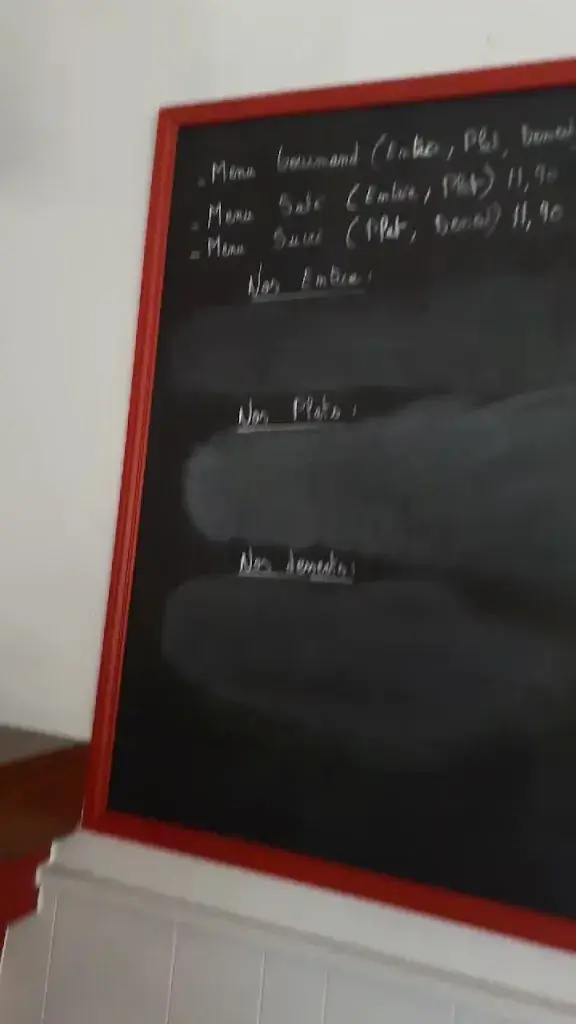 - Menu Gourmand (Entrée, Plat, Dessert
- Menu Salé (Entrée, Plat) 11,90
- Menu Sucré (Plat, Dessert) 11,90
Nos Entrées :
Nos Plats :
Nos desserts :